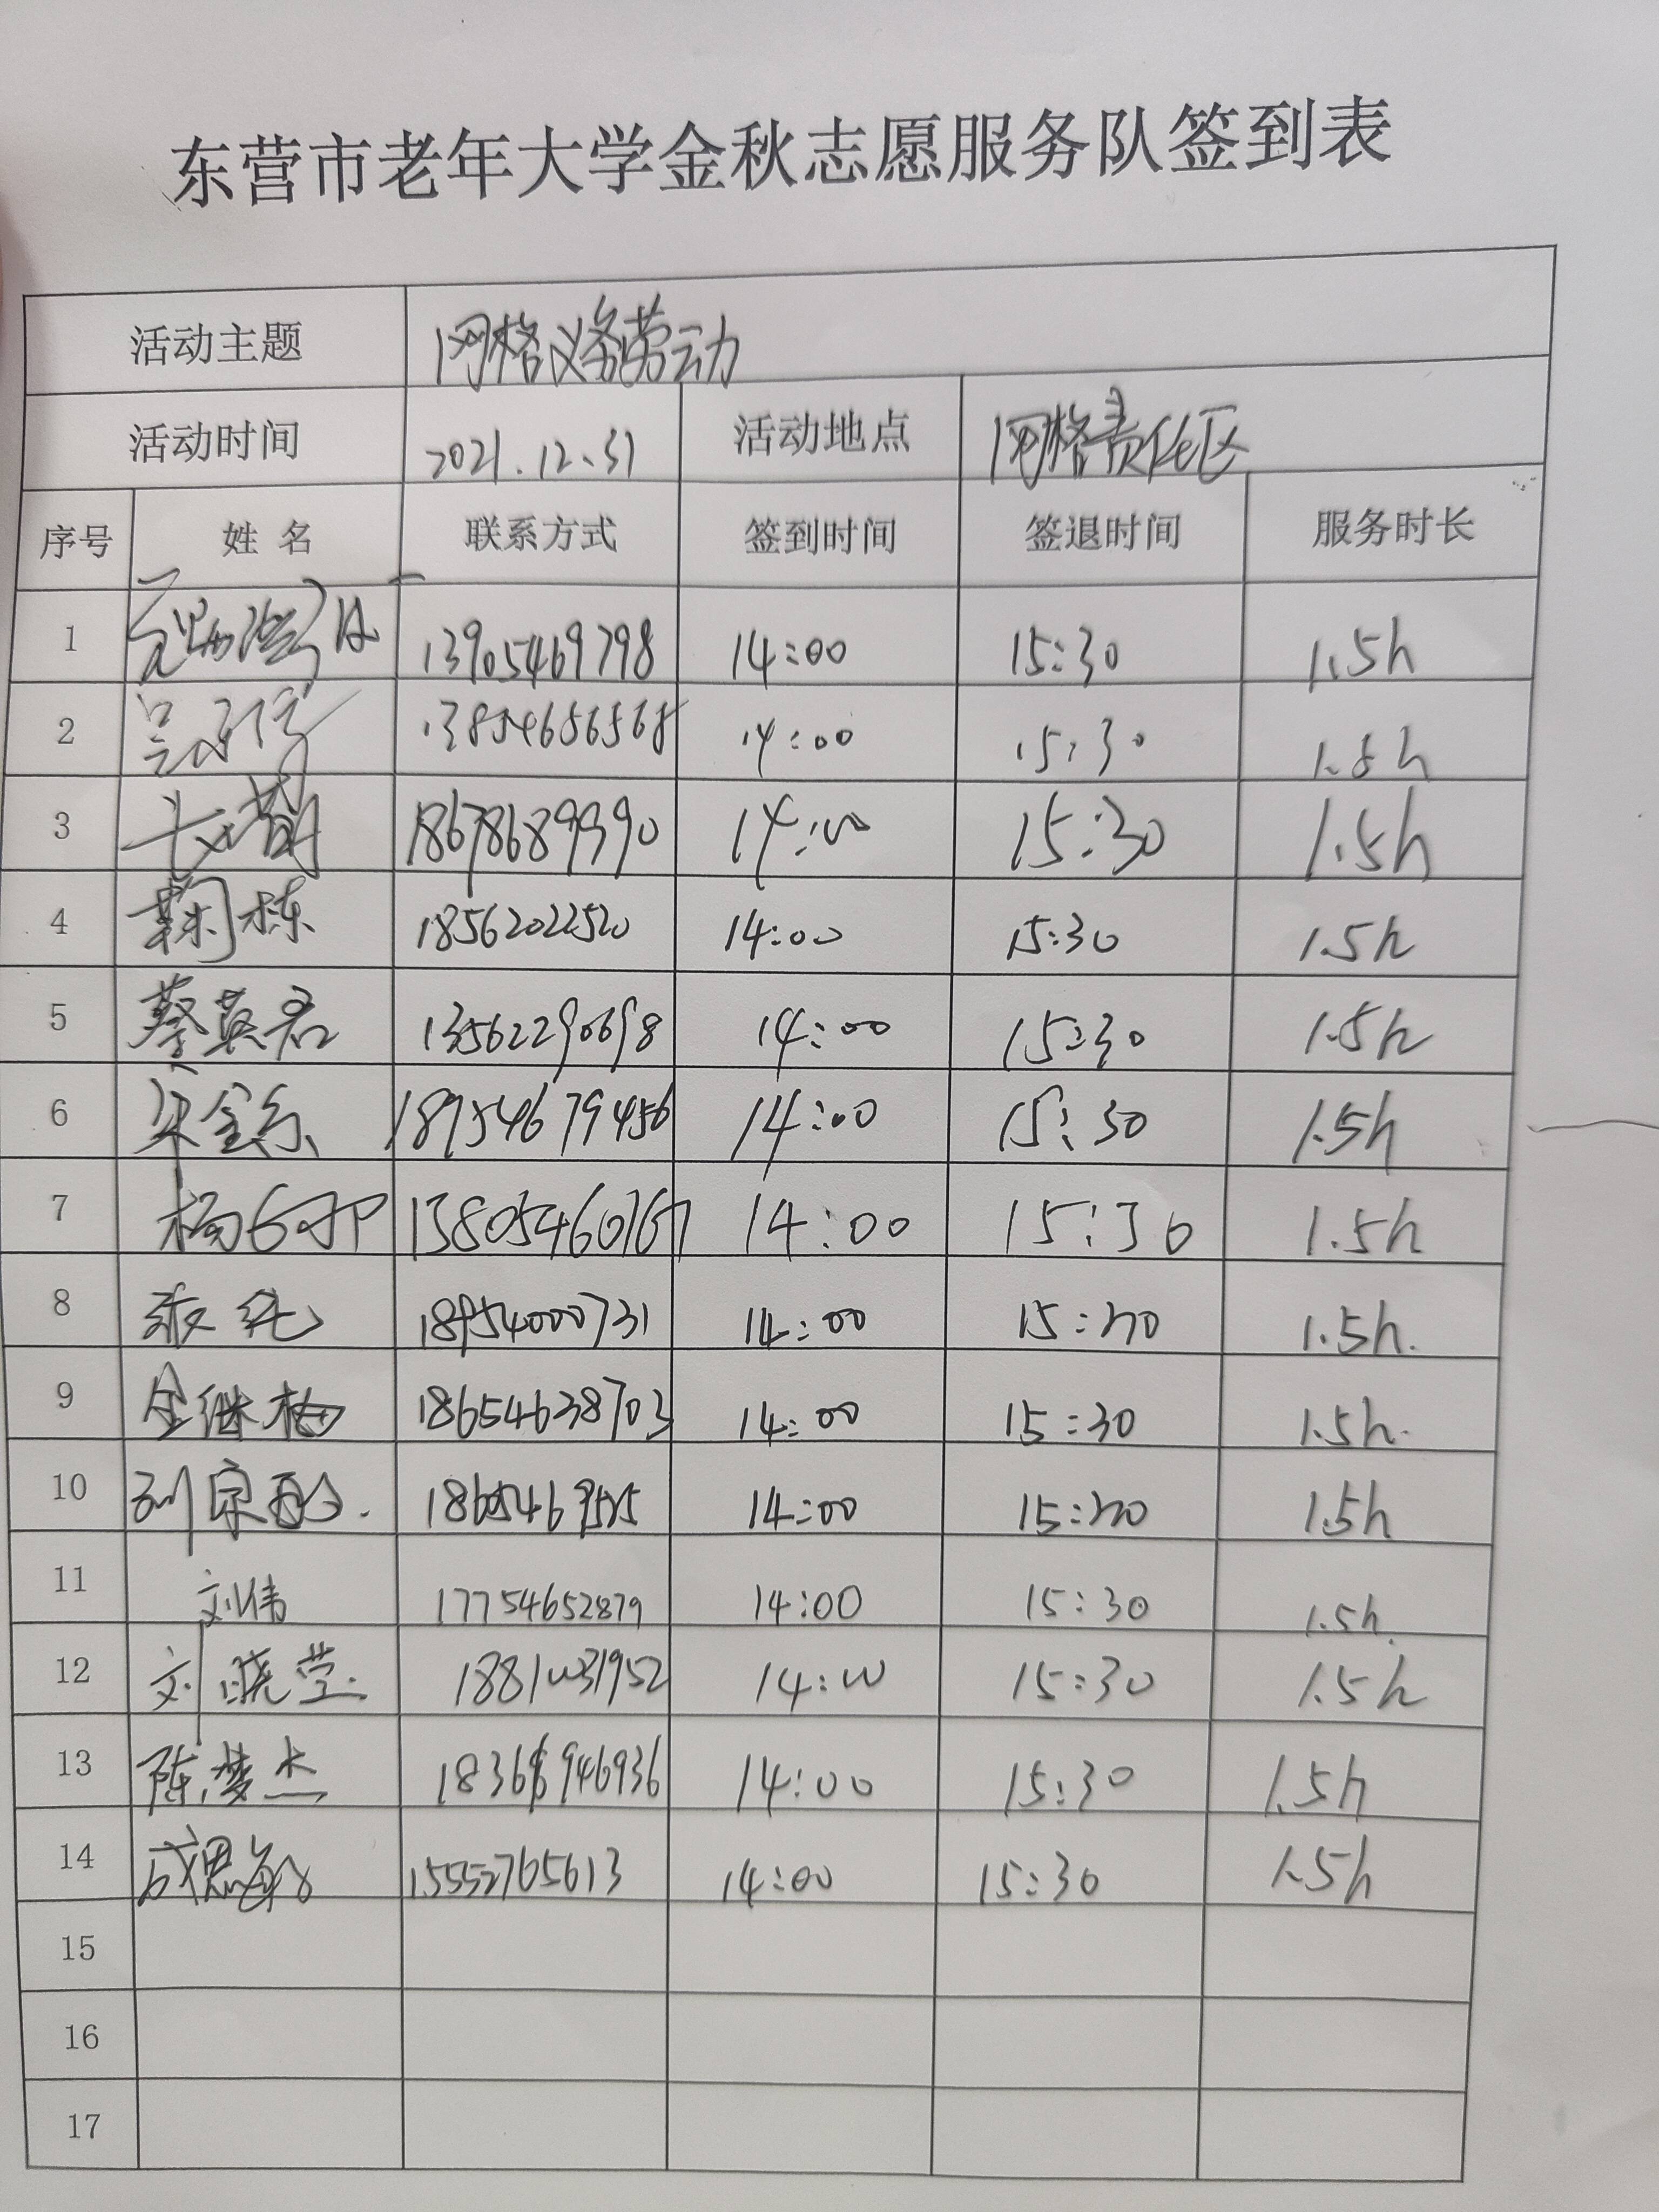 东营市老年大学金秋志愿服务队签到表
活动主题 网格义务劳动
活动时间 2021.12.31 活动地点 网格责任区
序号 姓名 联系方式 签到时间 签退时间 服务时长
1 13905469798 14:00 15:30 1.5h
2 13854656568 14:00 15:30 1.5h
3 18678689990 14:00 15:30 1.5h
4 鞠栋 18562022520 14:00 15:30 1.5h
5 蔡英君 13562290698 14:00 15:30 1.5h
6 18954679456 14:00 15:30 1.5h
7 14:00 15:30 1.5h
8 张纯 18954000731 14:00 15:30 1.5h.
9 金继梅 18654638703 14:00 15:30 1.5h.
10 14:00 15:30 1.5h
11 刘伟 17754652879 14:00 15:30 1.5h.
12 刘晓莹. 14:00 15:30 1.5h
13 陈梦杰 14:00 15:30 1.5h
14 成思敏 15552765613 14:00 15:30 1.5h
15
16
17